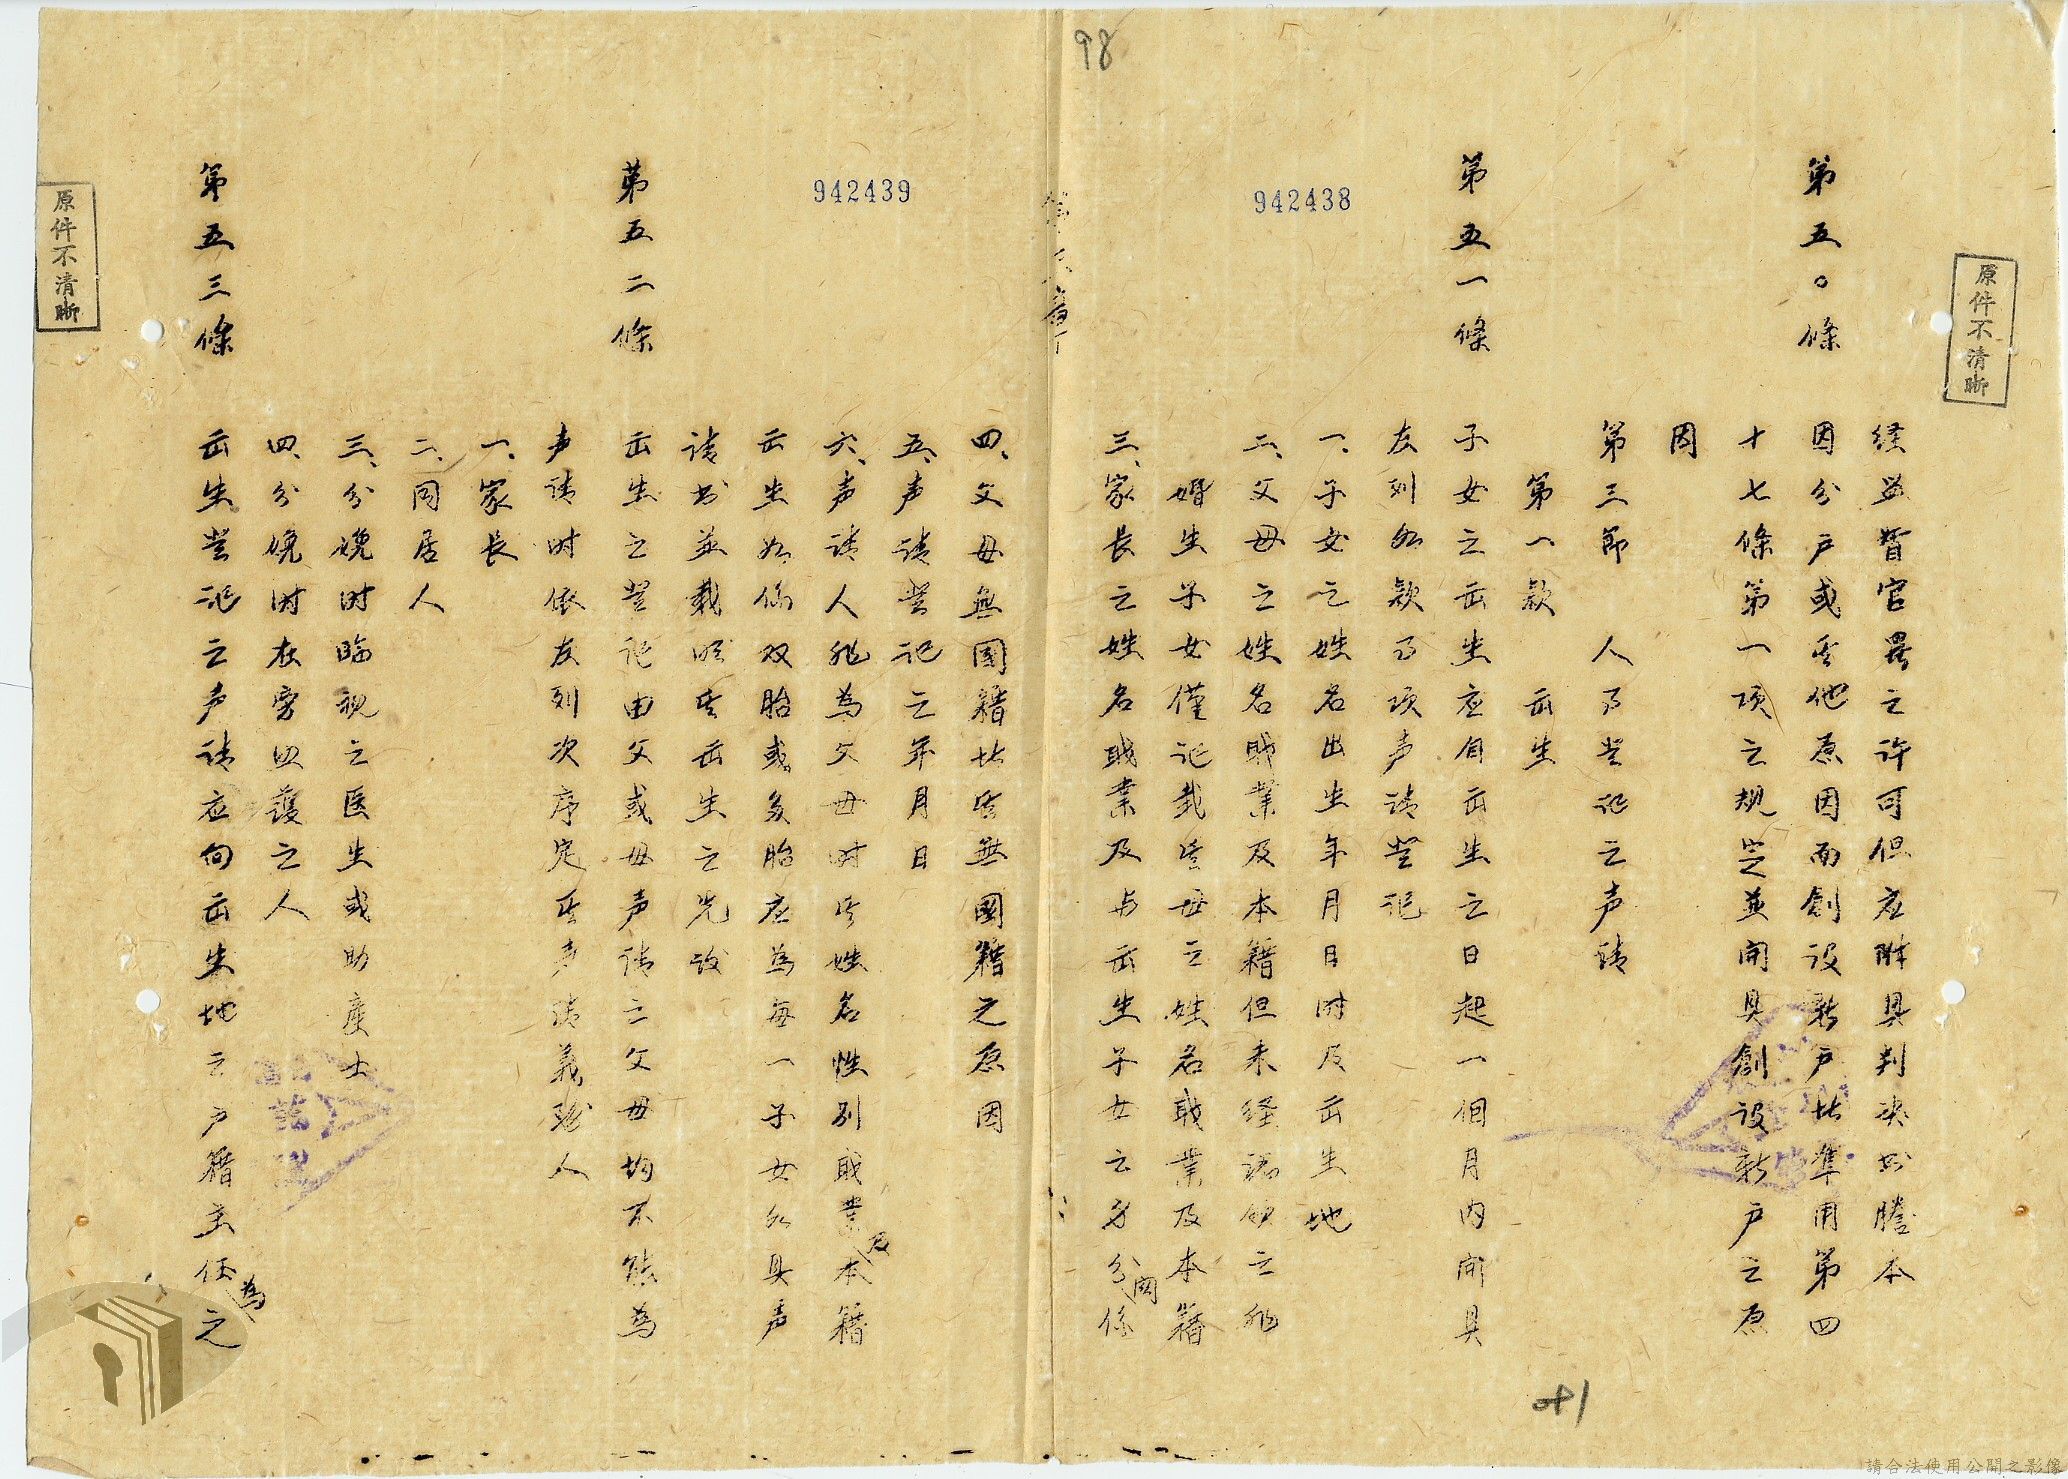 98
942438
942439
原件不清晰
原件不清晰
経監督官署之許可但应附具判决书謄本
第五〇條 因分户或其他原因而創设新户者準用第四
十七條第一项之規定並開具創设新户之原
因
第三節 人事登记之声请
第一款 出生
第五一條 子女之出生应自出生之日起一個月内開具
左列各款事项声请登记
一、子女之姓名出生年月日时及出生地
二、父母之姓名职業及本籍但未経認領之非
婚生子女僅记载其母之姓名职業及本籍
三、家長之姓名职業及与出生子女之身分関係
四、父母無國籍者其無國籍之原因
五、声请登记之年月日
六、声请人非為父母时其姓名性别职業及本籍
出生如係双胎或多胎应為每一子女各具声
请书並載明其出生之先後
第五二條 出生之登记由父或母声请之父母均不能為
声请时依左列次序定其声请義務人
一、家長
二、同居人
三、分娩时臨視之医生或助產士
四、分娩时在旁照護之人
第五三條 出生登记之声请应向出生地之户籍主任為之
41
請合法使用公開之影像